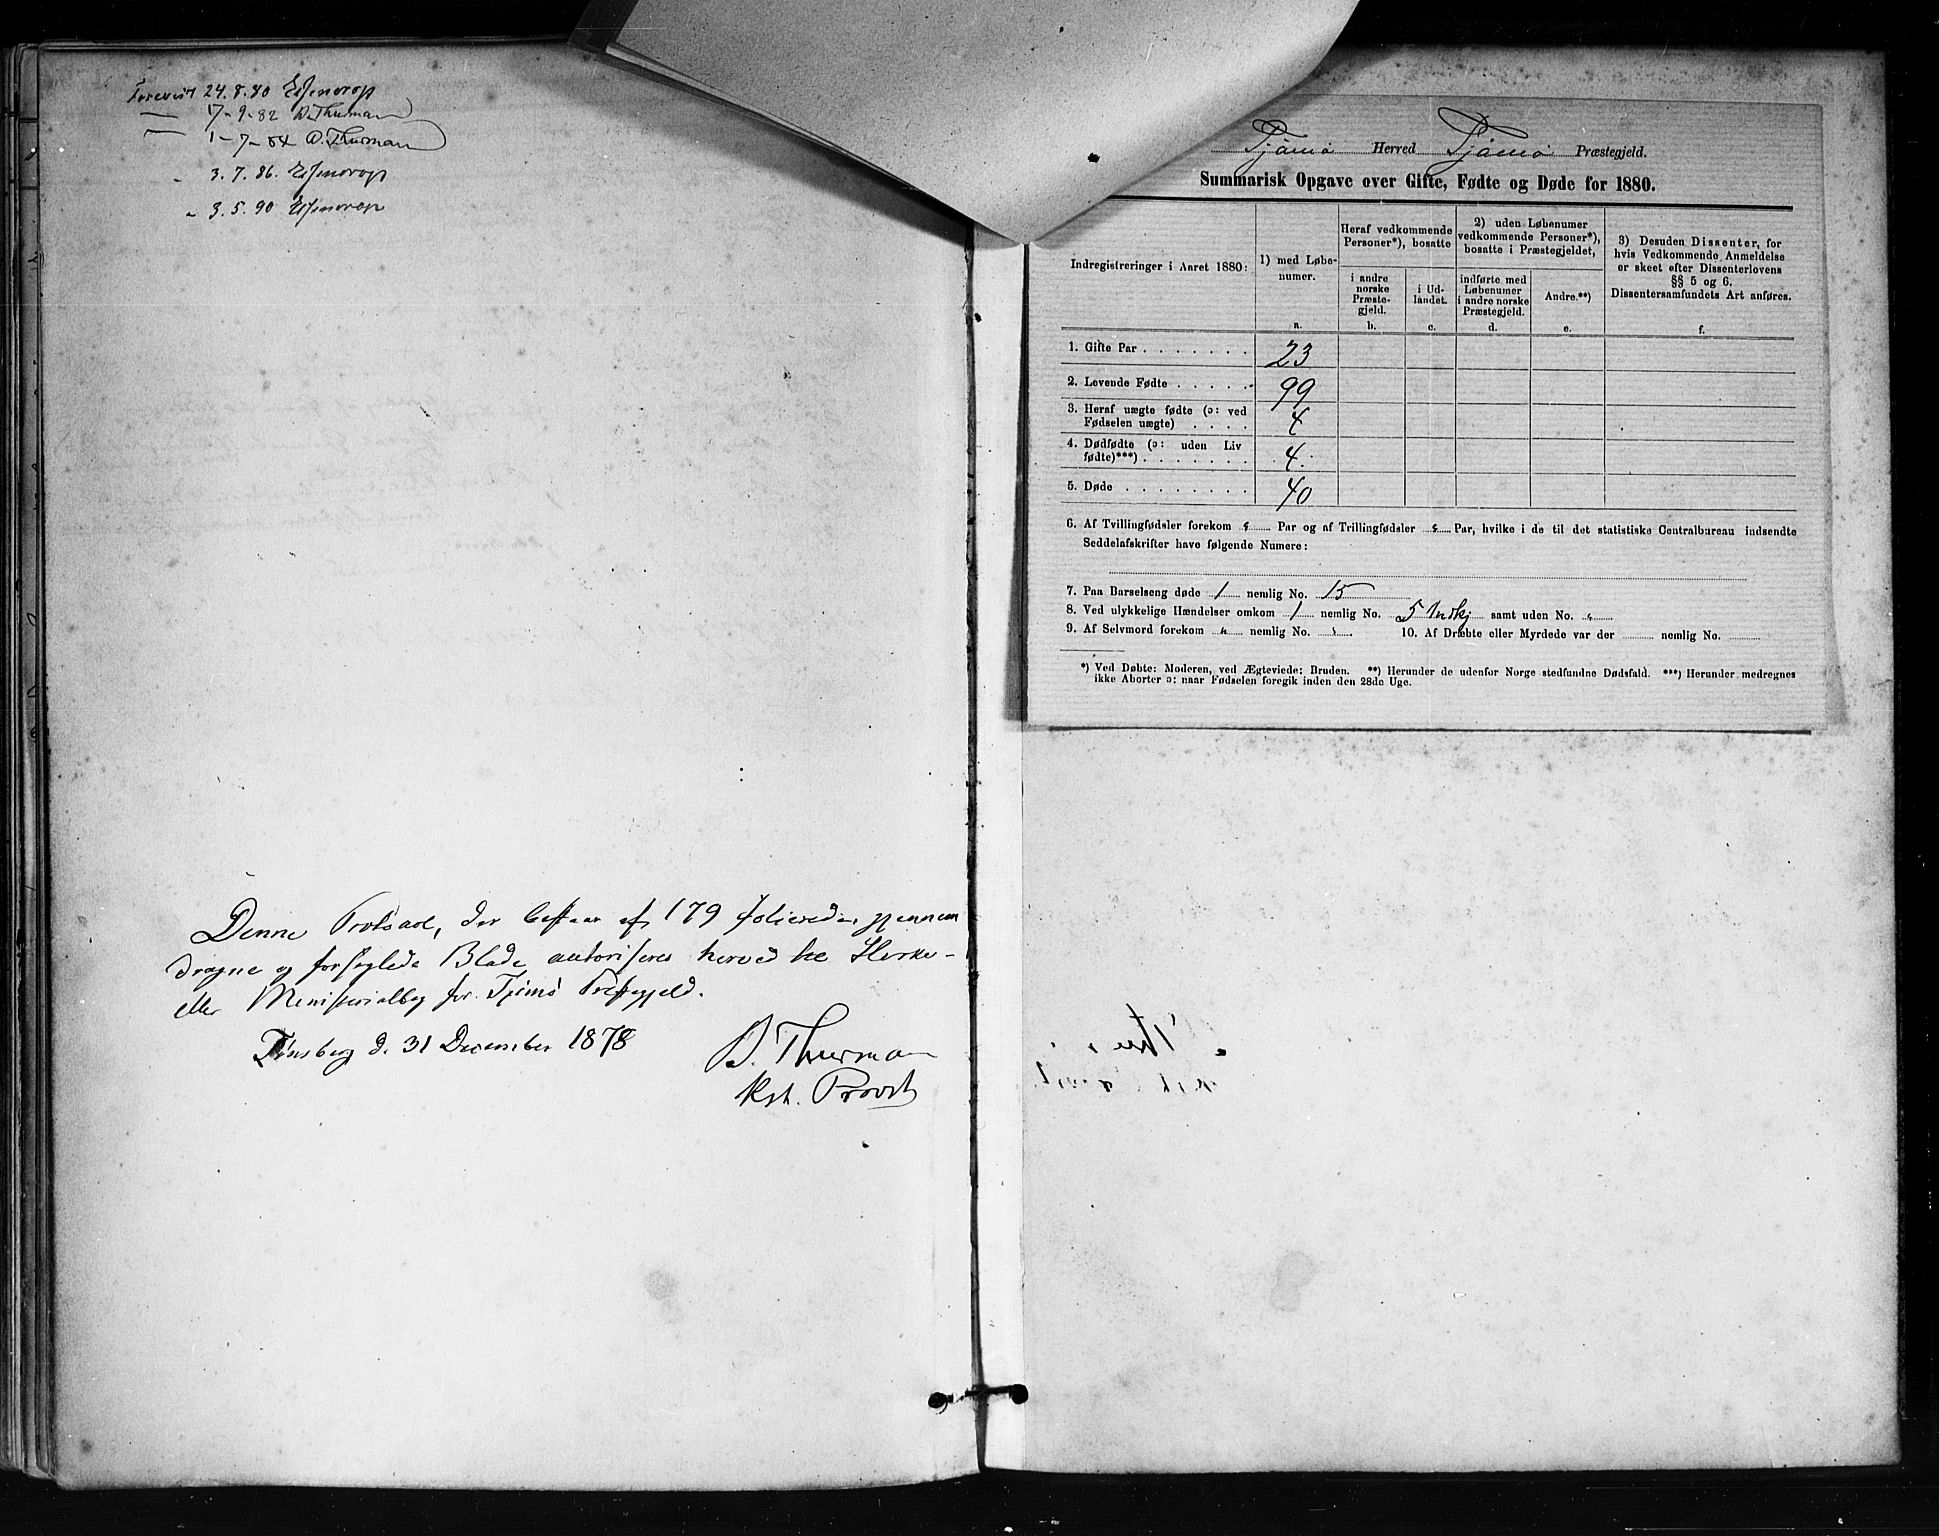 Forevist 24.8.80 Essendrop
— 17-9-82 D. Thurman
— 1-7-84 D. Thurman
" 3.7.86. Essendrop
" 3.5.90 Essendrop
Denne Protocol, der bestaar af 179 folierede, gjennem
dragne og forseglede Blade autoriseres herved til Kirke-
eller Ministerialbog for Tjømø Præstegjeld.
Tønsberg d. 31 December 1878
D. Thurman
Kst. Provst
Tjømø Herred Tjømø Præstegjeld.
Summarisk Opgave over Gifte, Fødte og Døde for 1880.
Indregistreringer i Aaret 1880:
1) med Løbe-
numer.
a.
Heraf vedkommende
Personer*), bosatte
i andre
norske
Præste-
gjeld.
b.
i Ud-
landet.
c.
2) uden Løbenumer
vedkommende Personer*),
bosatte i Præstegjeldet,
indførte med
Løbenumer
i andre norske
Præstegjeld.
d.
Andre.**)
e.
3) Desuden Dissenter, for
hvis Vedkommende Anmeldelse
er skeet efter Dissenterlovens
§§ 5 og 6.
Dissentersamfundets Art anføres.
f.
1. Gifte Par . . . . . . . 23
2. Levende Fødte . . . . . . 99
3. Heraf uægte fødte (ɔ: ved
Fødselen uægte) . . . . 4
4. Dødfødte (ɔ: uden Liv
fødte)***) . . . . . . . 4.
5. Døde . . . . . . . . . 40
6. Af Tvillingfødsler forekom " Par og af Trillingfødsler " Par, hvilke i de til det statistiske Centralbureau indsendte
Seddelafskrifter have følgende Numere:
7. Paa Barselseng døde 1 nemlig No. 15
8. Ved ulykkelige Hændelser omkom 1 nemlig No. 5 Mdkj samt uden No. "
9. Af Selvmord forekom " nemlig No. " 10. Af Dræbte eller Myrdede var der nemlig No.
*) Ved Døbte: Moderen, ved Ægteviede: Bruden. **) Herunder de udenfor Norge stedfundne Dødsfald. ***) Herunder medregnes
ikke Aborter ɔ: naar Fødselen foregik inden den 28de Uge.